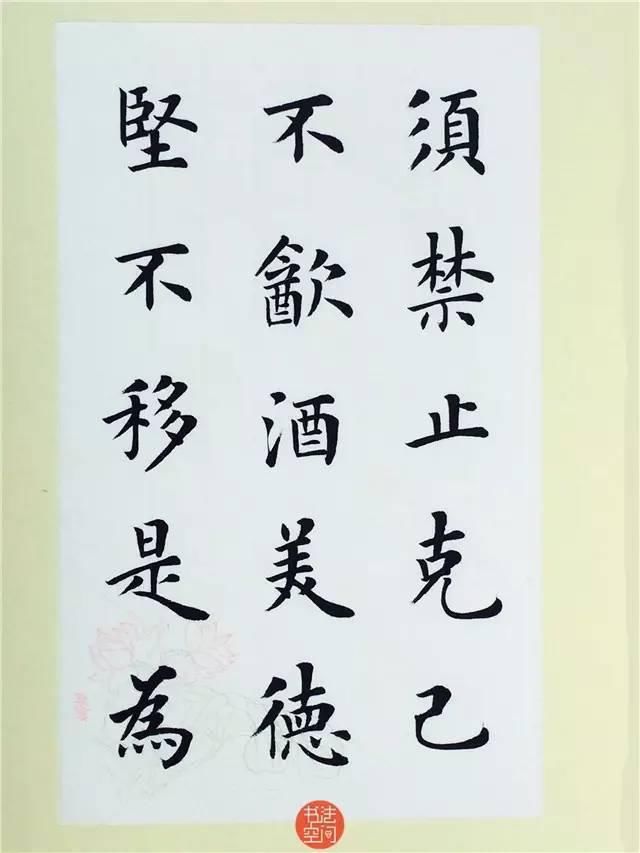 須禁止克己
不飲酒美德
堅不移是為
书法空间